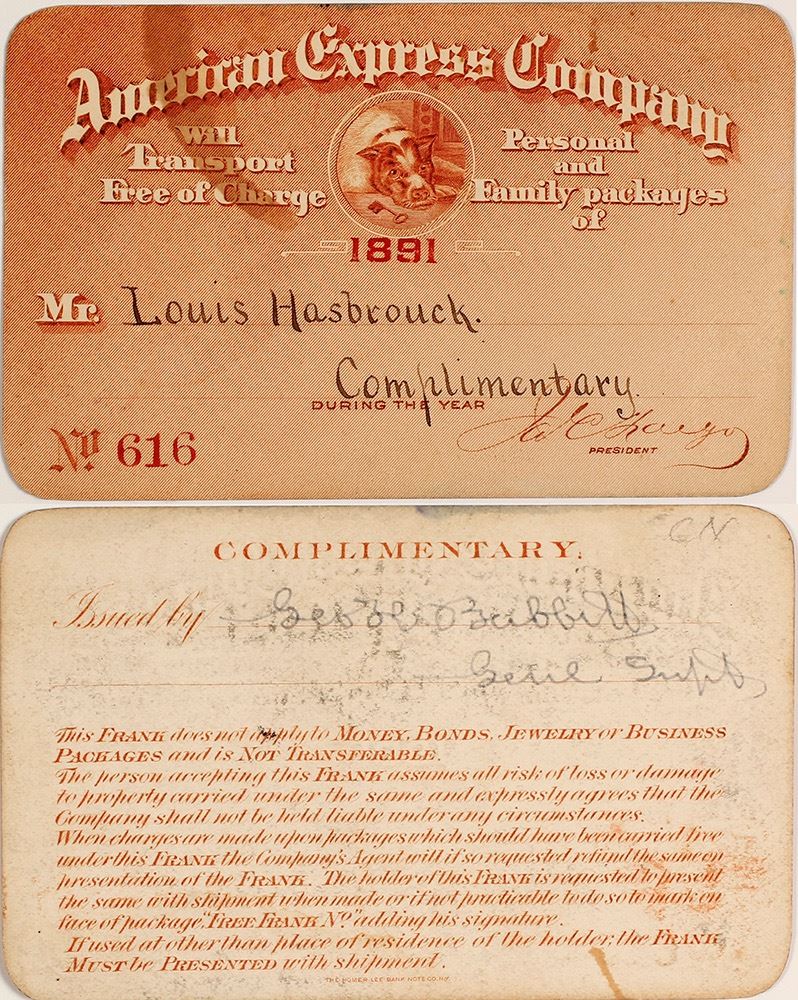 American Express Company
Will
Transport
Free of Charge
Personal
and
Family packages
of
1891
Mr. Louis Hasbrouck.
Complimentary.
DURING THE YEAR
Jas C Fargo
PRESIDENT
No 616
CN
COMPLIMENTARY.
Issued by Babbitt
Genl Supt,
This FRANK does not apply to MONEY, BONDS, JEWELRY or BUSINESS
PACKAGES and is NOT TRANSFERABLE.
The person accepting this FRANK assumes all risk of loss or damage
to property carried under the same and expressly agrees that the
Company shall not be held liable under any circumstances.
When charges are made upon packages which should have been carried free
under this FRANK the Company's Agent will if so requested refund the same on
presentation of the FRANK. The holder of this FRANK is requested to present
the same with shipment when made or if not practicable to do so to mark on
face of package, "FREE FRANK No." adding his signature.
If used at other than place of residence of the holder, the FRANK
MUST be PRESENTED with shipment.
THE HOMER LEE BANK NOTE CO. N.Y.